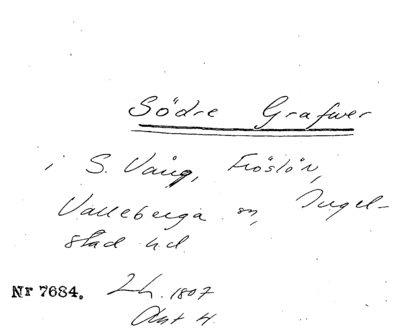 Södre Grafwer
i S. Vång, Fröslöv,
Valleberga sn, Ingel-
stad hd.
Nr 7684. Lh. 1807
Akt 4.